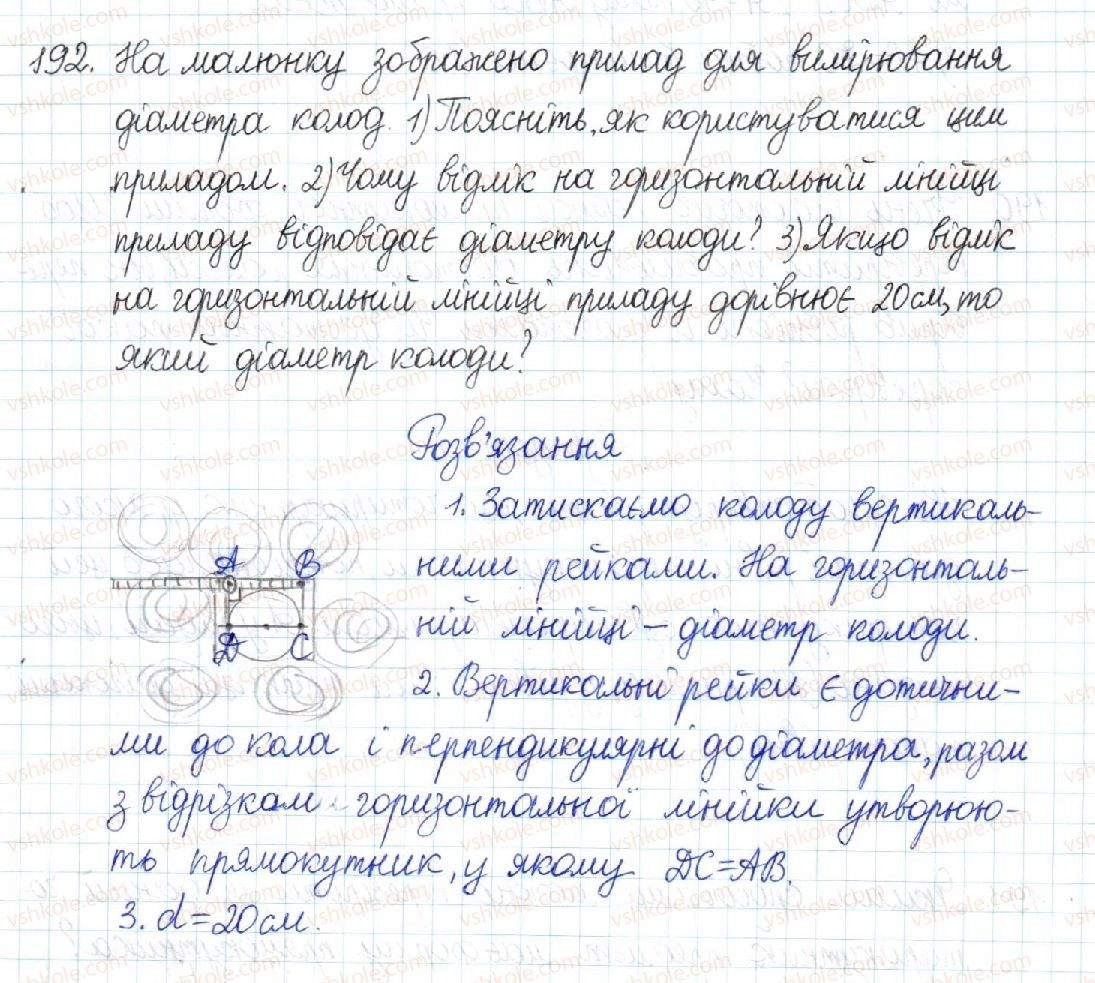 192. На малюнку зображено прилад для вимірювання
діаметра колод. 1) Поясніть, як користуватися цим
приладом. 2) Чому відлік на горизонтальній лінійці
приладу відповідає діаметру колоди? 3) Якщо відлік
на горизонтальній лінійці приладу дорівнює 20см, то
який діаметр колоди?
Розв'язання
1. Затискаємо колоду вертикаль-
ними рейками. На горизонталь-
ній лінійці – діаметр колоди.
A B
D C
2. Вертикальні рейки є дотични-
ми до кола і перпендикулярні до діаметра, разом
з відрізкам горизонтальної лінійки утворюю-
ть прямокутник, у якому DC=AB.
3. d=20см.
vshkole.com